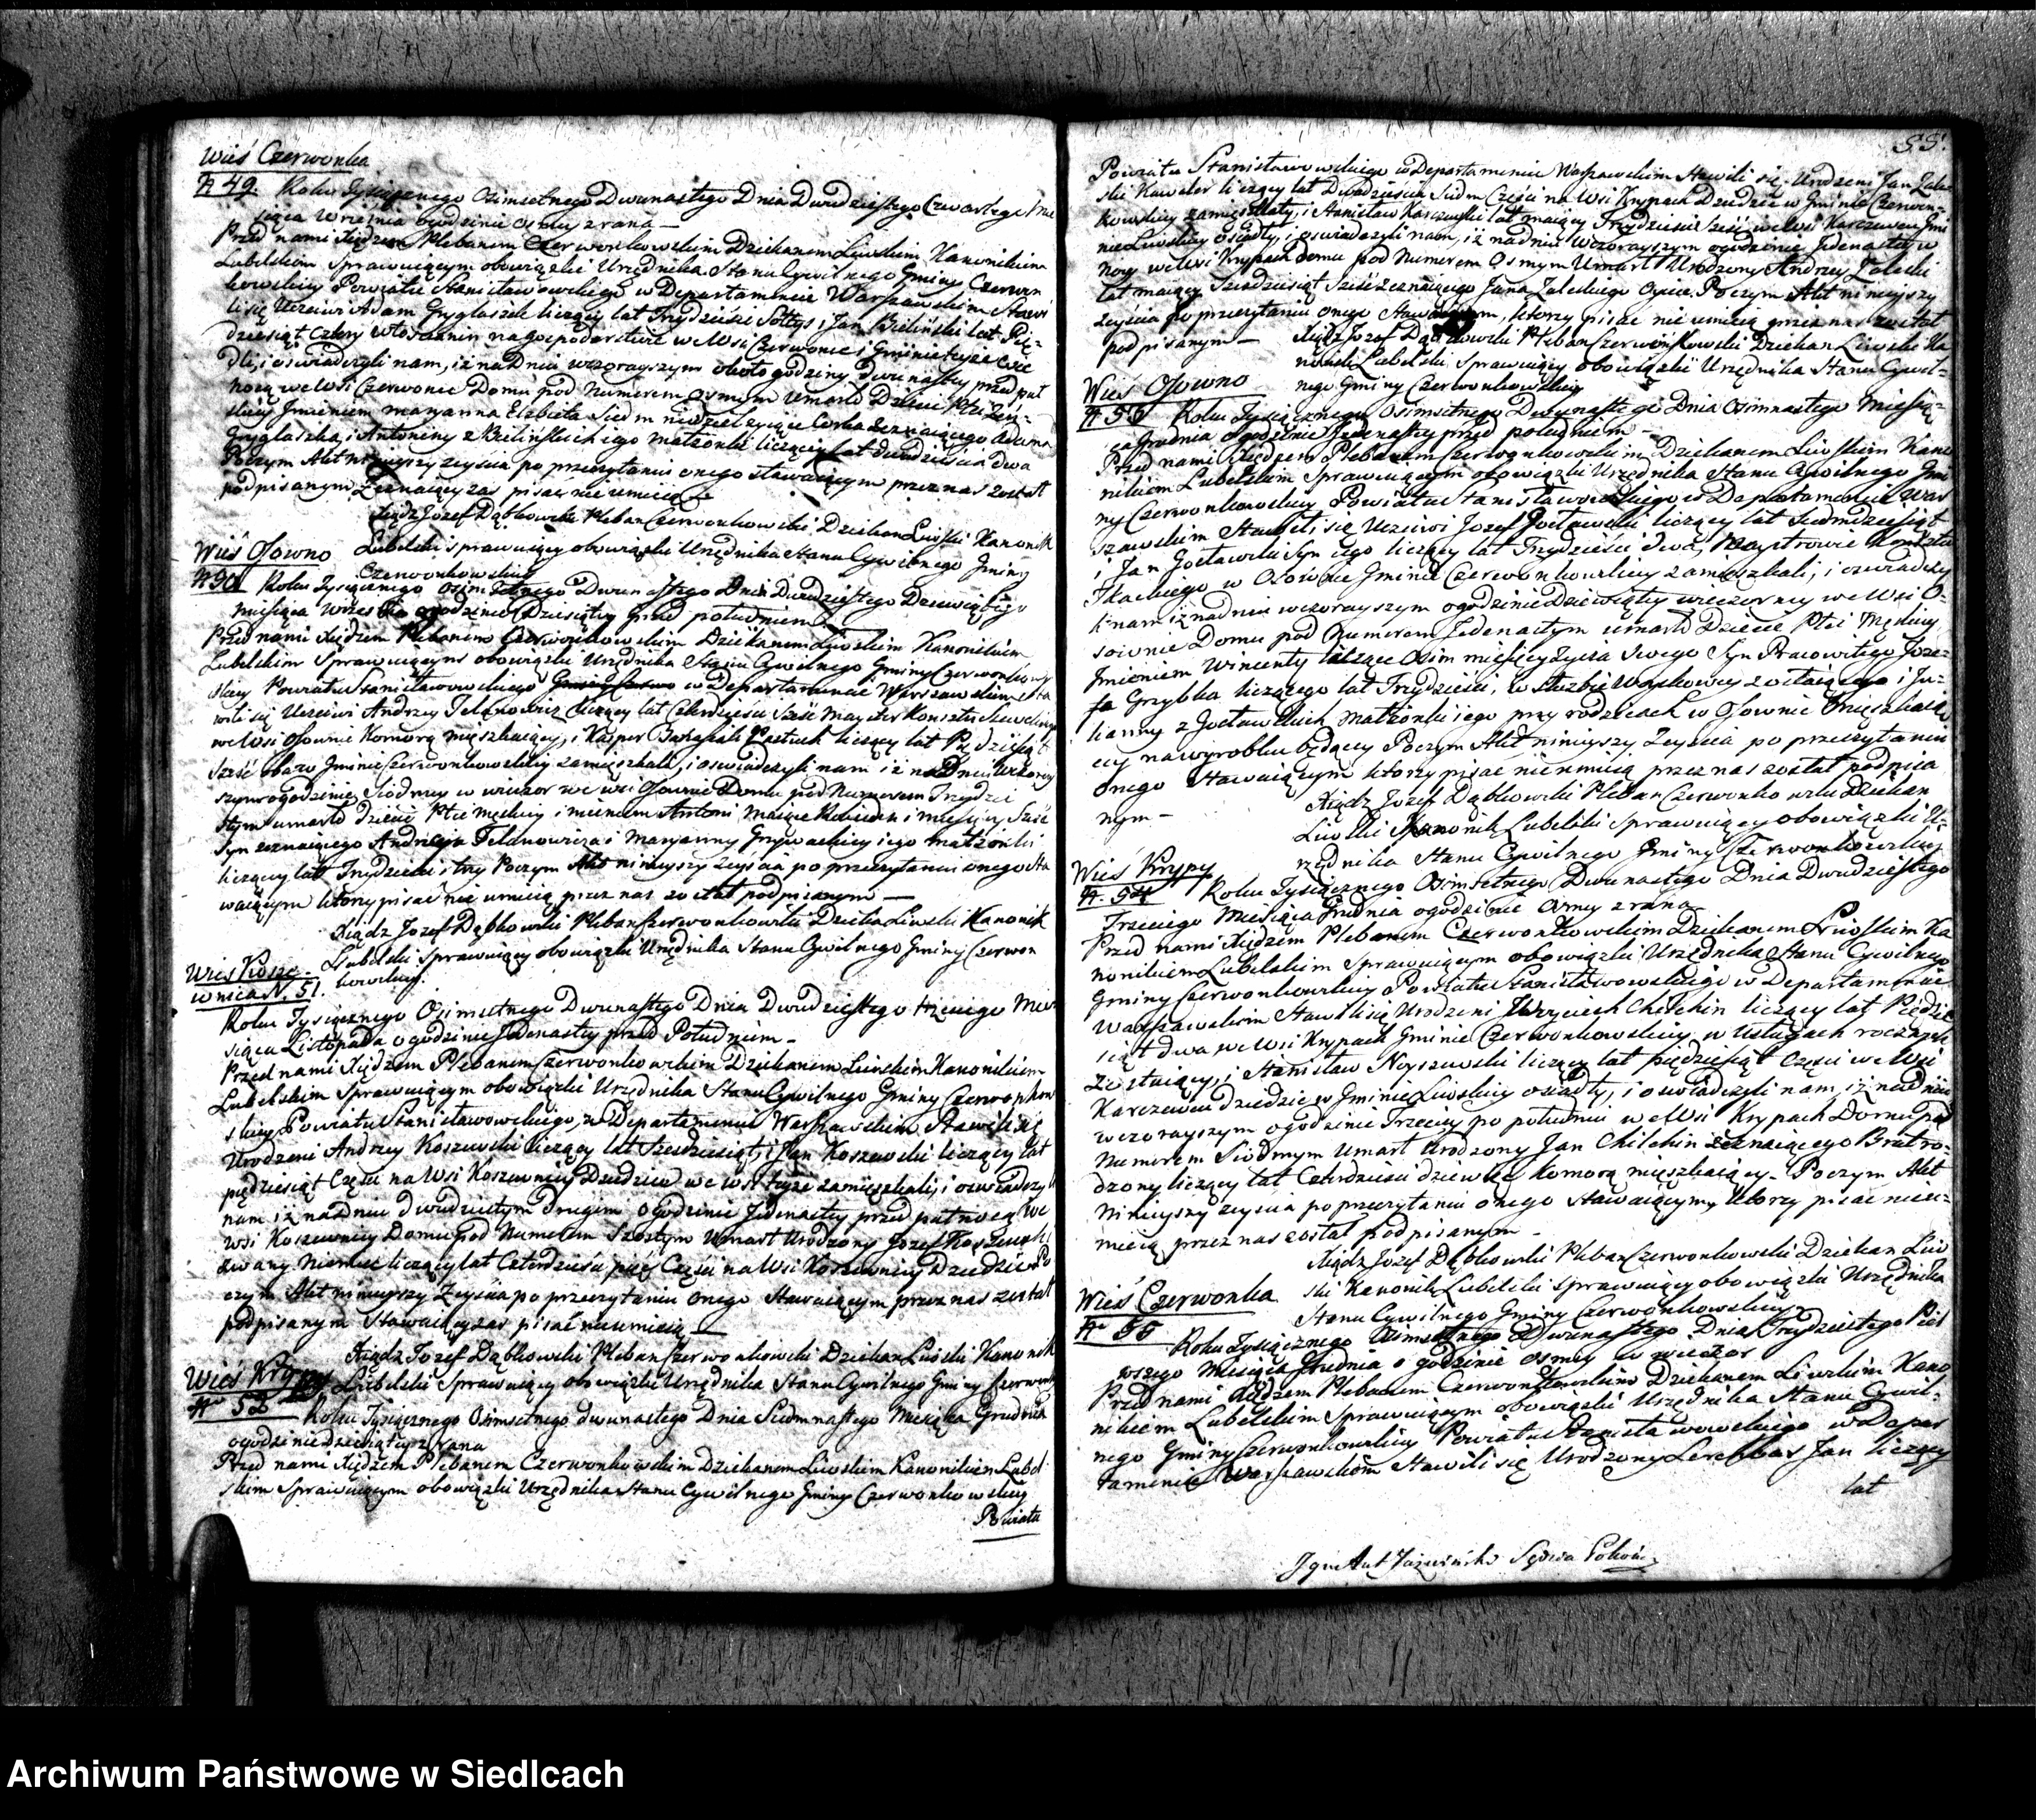 Wieś Czerwonka
N 49. Roku Tysiącznego Osimsetnego Dwunastego Dnia Dwudziestego Czwartego Mie
siąca Wrzesnia ogodzinie osmey zrana —
Przed nami Xiędzem Plebanem Czerwonkowskim Dziekanem Liwskim Kanonikiem
Lubelskim Sprawuiącym obowiązki Urzędnika Stanu Cywilnego Gminy Czerwon
kowskiey Powiatu Stanisławowskiego w Departamencie Warszawskim Stawi
li się Uczciwi Adam Gryglaszek liczący lat Trzydzieści Sołtys i Jan Bieliński lat Pię-
dziesiąt cztery włościanin na gospodarstwie we Wsi Czerwonce i Gminie teyże osie
dli, i oswiadczyli nam, iż na Dniu wczorayszym około godziny dwunastey przed puł
nocą we Wsi Czerwonce Domu pod Numerem osmym Umarło Dziecie Płci Zeń-
skiey Jmieniem Maryanna Elzbieta Siedm niedziel zyiące Corka Zeznaiącego Adama
Gryglaszka, i Antoniny z Bielińskich iego małżonki liczącey lat dwadzieścia dwa
Poczym Akt ninieyszy zeyscia po przeczytaniu onego stawaiącym przez nas został
podpisanym Zeznaiący zas pisać nie umieią —
Xiądz Jozef Dąbkowski Pleban Czerwonkowski Dziekan Liwski Kanonik
Lubelski sprawuiący obowiązki Urzędnika Stanu Cywilnego Gminy
Czerwonkowskiey
Wieś Osowno
N 50 Roku Tysiącznego osim setnego Dwunastego Dnia Dwudziestego Dziewiątego
Miesiąca Wrzesnia ogodzinie Dziesiątey przed południem
Przed nami Xiędzem Plebanem Czerwonkowskim Dziekanem Liwskim Kanonikiem
Lubelskim Sprawuiącym obowiązki Urzędnika Stanu Cywilnego Gminy Czerwonkow
skiey Powiatu Stanisławowskiego w Departamencie Warszawskim Sta
wili się Uczciwi Andrzey Felanowicz liczący lat Czterdzieści Sześć Mayster Konsztu Szewskiego
we Wsi Osownie Komorą mięszkaiący, i Kasper Pastuch liczący lat Pięćdziesiąt
Sześć obaw Gminie Czerwonkowskiey zamięszkali, i oswiadczyli nam iż na Dniu wczoray
szym ogodzinie Siodmey w wieczor we wsi Osownie Domu pod Numerem Trzydzie
stym umarło dziecie Płci męskiey imieniem Antoni maiące miesięcy Sześć
Syn zeznaiącego Andrzeja Felanowicza i Maryanny Grzywackiey iego małżonki
liczącey lat Trzydzieści trzy Poczym Akt ninieyszy zeyścia po przeczytaniu onego sta
waiącym ktorzy pisać nie umieią przez nas został podpisanym —
Xiądz Jozef Dąbkowski Pleban Czerwonkowski Dziekan Liwski Kanonik
Lubelski Sprawuiący obowiązki Urzędnika Stanu Cywilnego Gminy Czerwon
kowskiey.
Wieś Kosze-
wnica N. 51.
Roku Tysiącznego Osimsetnego Dwunastego Dnia Dwudziestego trzeciego Mie
siąca Listopada ogodzinie Jedenastey przed Południem -
Przed nami Xiędzem Plebanem Czerwonkowskim Dziekanem Liwskim Kanonikiem
Lubelskim Sprawuiącym obowiązki Urzędnika Stanu Cywilnego Gminy Czerwonkow
skiey Powiatu Stanisławowskiego, w Departamencie Warszawskim Stawili się
Urodzeni Andrzey Koszewski liczący lat Sześdziesiąt, i Jan Koszewski liczący lat
pięćdziesiąt Części na Wsi Koszewnicy Dziedzice we wsi teyże zamięszkali, i oswiadczyli
nam iż na Dniu dwudziestym drugim ogodzinie Jedenastey przed pułnocą we
wsi Koszewnicy Domu pod Numerem Szostym Umarł Urodzony Jozef Koszewski
zwany Niemiec liczący lat Czterdzieści pięć Części na Wsi Koszewnicy Dziedzic Po
czym Akt ninieyszy Zeyścia po przeczytaniu onego Stawaiącym przez nas został
podpisanym Stawaiący zas pisać nie umieią —
Xiądz Jozef Dąbkowski Pleban Czerwonkowski Dziekan Liwski Kanonik
Lubelski Sprawuiący obowiązki Urzędnika Stanu Cywilnego Gminy Czerwonk
Wieś Krypy
N 52 Roku Tysiącznego Osimsetnego dwunastego Dnia Siedmnastego Miesiąca Grudnia
ogodzinie dziesiątey zrana
Przed nami Xiędzem Plebanem Czerwonkowskim Dziekanem Liwskim Kanonikiem Lubel
skim Sprawuiącym obowiązki Urzędnika Stanu Cywilnego Gminy Czerwonkowskiey
Powiatu
55.
Powiatu Stanisławowskiego w Departamencie Warszawskim Stawili się Urodzeni Jan Zale
ski Kawaler liczący lat Dwadzieścia Siedm Części na Wsi Krypach Dziedzic w Gminie Czerwon-
kowskiey zamięszkały, i Stanisław Karczewski lat maiący Trzydzieści Sześć we Wsi Karczewcu Gmi
nie Liwskiey osiadły, i oswiadczyli nam, iż na dniu wczorayszym ogodzinie Jedenastey w
nocy we Wsi Krypach Domu pod Numerem Osmym Umarł Urodzony Andrzey Zaleski
lat maiący Sześdziesiąt Sześć zeznaiącego Jana Zaleskiego Oyciec. Poczym Akt ninieyszy
zeyścia po przeczytaniu onego Stawaiącym, ktorzy pisać nie umieią przez nas został
podpisanym — Xiądz Jozef Dąbkowski Pleban Czerwonkowski Dziekan Liwski Ka
nonik Lubelski Sprawuiący obowiązki Urzędnika Stanu Cywil-
nego Gminy Czerwonkowskiey
Wieś Osowno
N 53 Roku Tysiącznego Osimsetnego Dwunastego Dnia Osimnastego Miesią-
ca Grudnia ogodzinie Jedenastey przed południem -
Przed nami Xiędzem Plebanem Czerwonkowskim Dziekanem Liwskim Kano
nikiem Lubelskim Sprawuiącym obowiązki Urzędnika Stanu Cywilnego Gmi
ny Czerwonkowskiey Powiatu Stanisławowskiego w Departamencie War
szawskim Stawili się Uczciwi Jozef Jocławski liczący lat Siedmdziesiąt
i Jan Jocławski Syn iego liczący lat Trzydzieści dwa, Maystrowie Konsztu
Tkackiego w Osownie Gminie Czerwonkowskiey zamięszkali, i oswiadczy
li nam iż na dniu wczorayszym ogodzinie Dziewiątey wieczorney we Wsi O-
sownie Domu pod Numerem Jedenastym umarło Dziecie Płci Męskiey
Jmieniem Wincenty liczące Osim miesięcy życia swego Syn Pracowitego Joze-
fa Grzybka liczącego lat Trzydzieści, w służbie Woyskowey zostaiącego i Ju-
lianny z Jocławskich małżonki iego przy rodzicach w Osownie Mięszkaią
cey na wyrobku będącey Poczym Akt ninieyszy Zeyścia po przeczytaniu
onego Stawaiącym ktorzy pisać nie umieią przez nas został podpisa
nym -
Xiądz Jozef Dąbkowski Pleban Czerwonkowski Dziekan
Liwski Kanonik Lubelski Sprawuiący obowiązki U-
rzędnika Stanu Cywilnego Gminy Czerwonkowskiey
Wieś Krypy
N. 54 Roku Tysiącznego Osimsetnego Dwunastego Dnia Dwudziestego
Trzeciego Miesiąca Grudnia ogodzinie osmey zrana
Przed nami Xiędzem Plebanem Czerwonkowskim Dziekanem Liwskim Ka
nonikiem Lubelskim Sprawuiącym obowiązki Urzędnika Stanu Cywilnego
Gminy Czerwonkowskiey Powiatu Stanisławowskiego w Departamencie
Warszawskim Stawili się Urodzeni Woyciech Chilchin liczący lat Pięćdzie
siąt dwa we Wsi Krypach Gminie Czerwonkowskiey w usługach rocznych
zostaiący, i Stanisław Noyszewski liczący lat pięćdziesiąt Części we Wsi
Karczewcu dziedzic w Gminie Liwskiey osiadły, i oswiadczyli nam, iż na dniu
wczorayszym ogodzinie Trzeciey po południu we Wsi Krypach Domu pod
Numerem Siodmym Umarł Urodzony Jan Chilchin zeznaiącego Brat ro-
dzony liczący lat Czterdzieści dziewięć Komorą mięszkaiący - Poczym Akt
Ninieyszy zeyścia po przeczytaniu onego Stawaiącym, ktorzy pisać nieu-
mieią przez nas został podpisanym -
Xiądz Jozef Dąbkowski Pleban Czerwonkowski Dziekan Liw
ski Kanonik Lubelski sprawuiący obowiązki Urzędnika
Stanu Cywilnego Gminy Czerwonkowskiey
Wieś Czerwonka
N 55 Roku Tysiącznego Osimsetnego Dwunastego Dnia Trzydziestego Pier
wszego Miesiąca Grudnia o godzinie osmey w wieczor
Przed nami Xiędzem Plebanem Czerwonkowskim Dziekanem Liwskim Kano
nikiem Lubelskim Sprawuiącym obowiązki Urzędnika Stanu Cywil-
nego Gminy Czerwonkowskiey Powiatu Stanisławowskiego w Depar
tamencie Warszawskim Stawili się Urodzony Jan liczący
lat
Archiwum Państwowe w Siedlcach